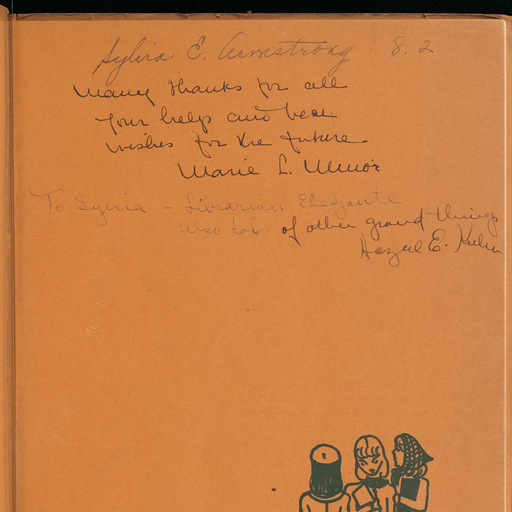 Sylvia E. Armstrong 8.2
Many thanks for all
your help and best
wishes for the future
Marie L. Minor
To Sylvia - Librarian Elegante
of other grand things
Hazel E.